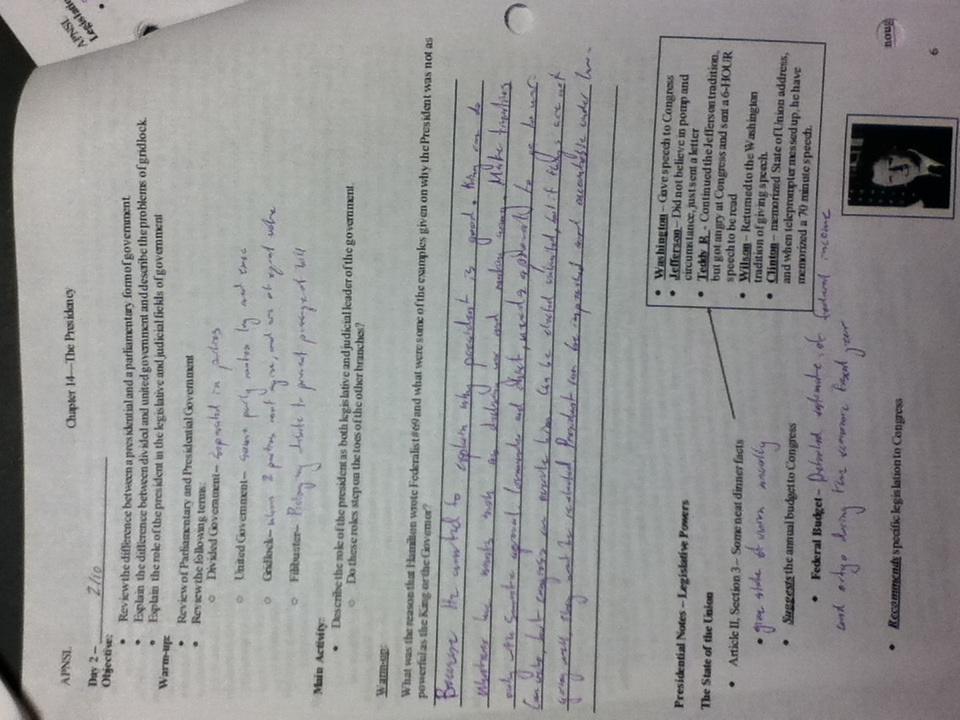 APNSL
Chapter 14—The Presidency
Day 2 – 2/10
Objective:
• Review the difference between a presidential and a parliamentary form of government.
• Explain the difference between divided and united government and describe the problems of gridlock.
• Explain the role of the president in the legislative and judicial fields of government
Warm-up:
• Review of Parliamentary and Presidential Government
• Review the following terms:
○ Divided Government– Separated in parties
○ United Government– Same party controls leg and exec
○ Gridlock– when 2 parties cant agree, and are at equal
○ Filibuster– Prolong debate to prevent passage of bill
Main Activity:
• Describe the role of the president as both legislative and judicial leader of the government.
○ Do these roles step on the toes of the other branches?
Warm-up:
What was the reason that Hamilton wrote Federalist #69 and what were some of the examples given on why the President was not as
powerful as the King or the Governor?
Because He wanted to explain why president is good. King can do
whatever he wants such as declaring war and making army. Make
only w/ Senate approval. Commander and chief, needs approval to go to war.
Can veto, but congress can override him. Can be elected unlimited, but if things are not
going well, they wont be reelected President can be impeached and accountable under law.
Presidential Notes – Legislative Powers
The State of the Union
• Article II, Section 3 – Some neat dinner facts
• give state of union annually
• Suggests the annual budget to Congress
• Federal Budget – Detailed estimate of federal income
and outgo during the fiscal year
• Recommends specific legislation to Congress
• Washington – Gave speech to Congress
• Jefferson – Did not believe in pomp and
circumstance, just sent a letter
• Teddy R. - Continued the Jefferson tradition,
but got angry at Congress and sent a 6-HOUR
speech to be read
• Wilson – Returned to the Washington
tradition of giving speech.
• Clinton – memorized State of Union address,
and when teleprompter messed up, he have
memorized a 70 minute speech.
6
APNSL
noug